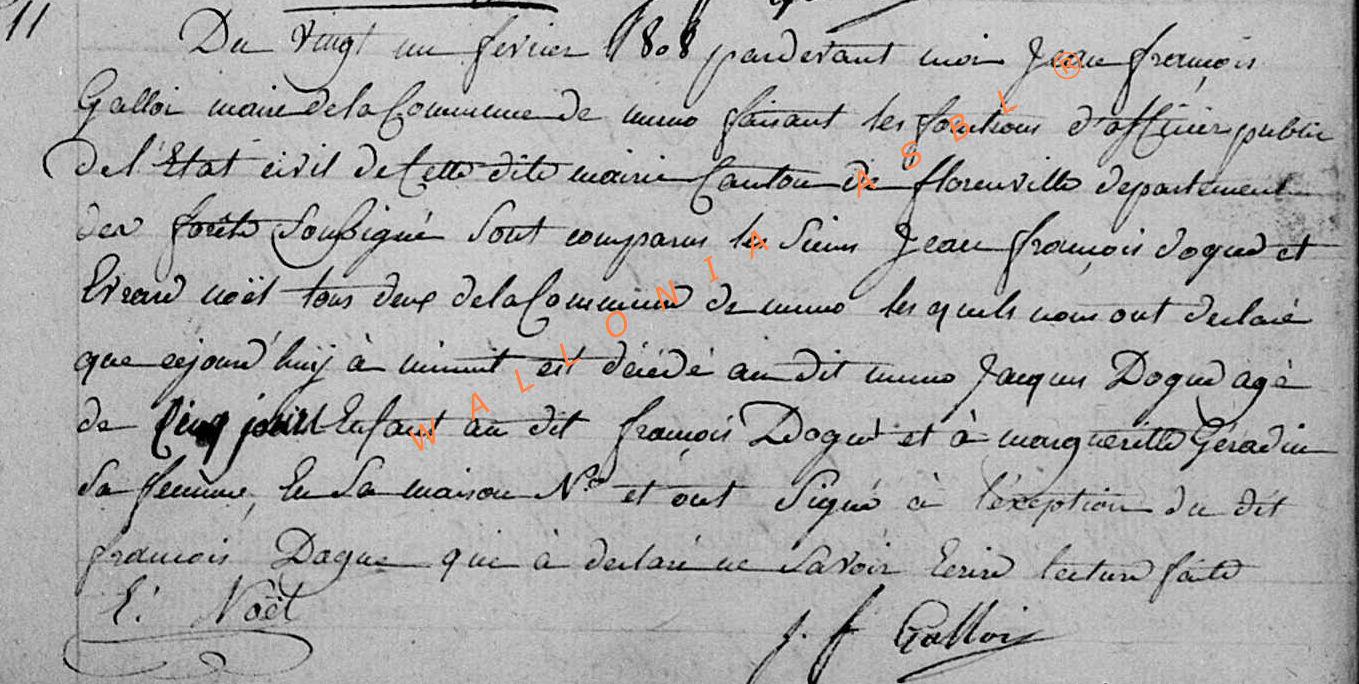 11
Du vingt un fevrier 1808 pardevant moi Jean françois
Galloi maire de la Commune de muno faisant les fonctions d'officier public
de l'Etat civil de Cette dite mairie Canton de florenville departement
des forêts Soussigné Sont comparus les Siens Jean françois doque et
Evrard noël tous deux de la Commune de muno les quels nous ont declaré
que cejourd'huy à minuit est décédé au dit muno Jacques Doque agé
de Cinq jours Enfant au dit françois Doque et à margueritte Géradin
Sa femme, En Sa maison N.º et ont Signé à l'exéption du dit
françois Doque qui à declaré ne Savoir Ecrire lecture faite
E: Noël
j. f Galloi
WALLONIA ASBL ®